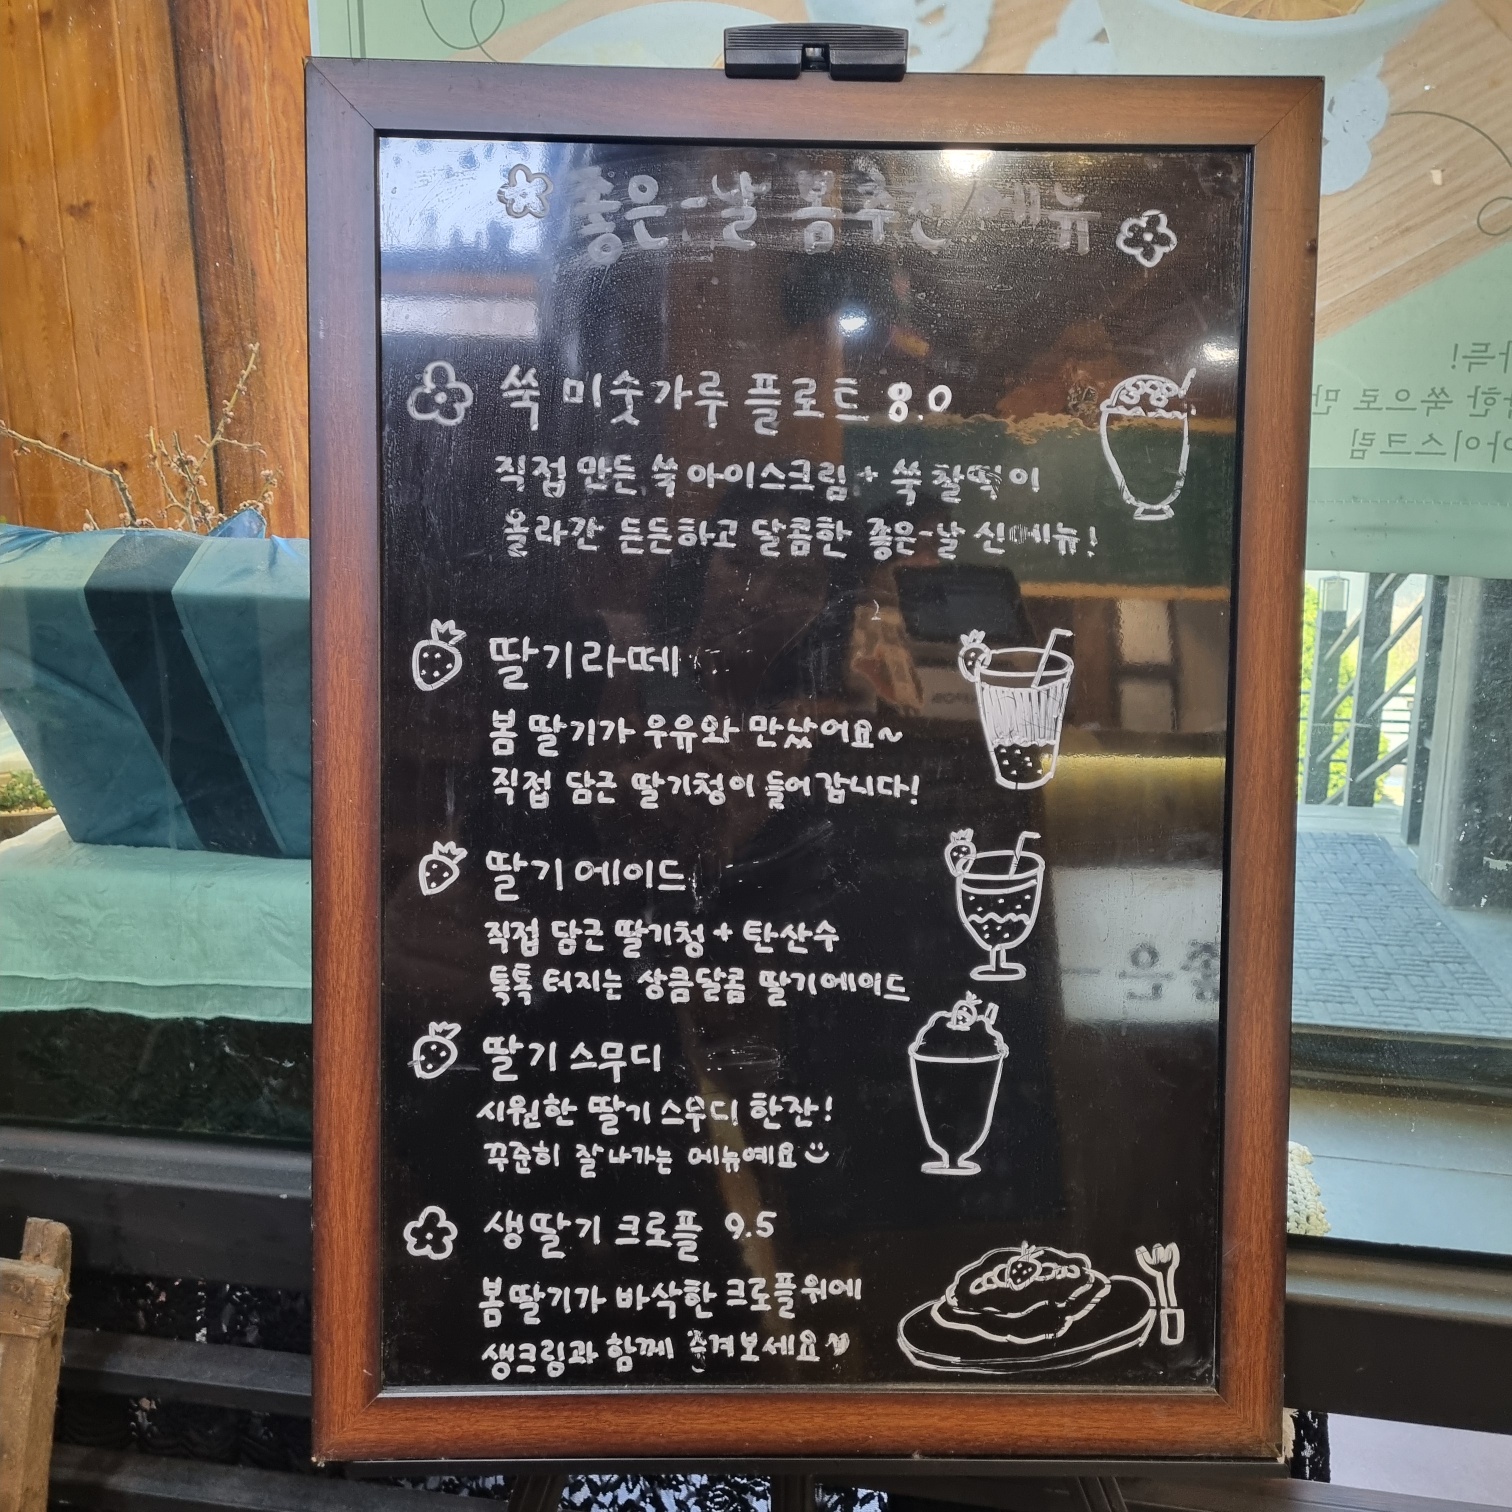 좋은-날 봄추천메뉴
쑥 미숫가루 플로트 8.0
직접 만든 쑥아이스크림 + 쑥찰떡이
올라간 든든하고 달콤한 좋은-날 신메뉴!
딸기라떼
봄 딸기가 우유와 만났어요~
직접 담근 딸기청이 들어갑니다!
딸기에이드
직접 담근 딸기청 + 탄산수
톡톡 터지는 상큼달콤 딸기에이드
딸기 스무디
시원한 딸기 스무디 한잔!
꾸준히 잘나가는 메뉴예요
생딸기 크로플 9.5
봄딸기가 바삭한 크로플위에
생크림과 함께 즐겨보세요
득!
한 쑥으로 만
아이스크림
좋은-